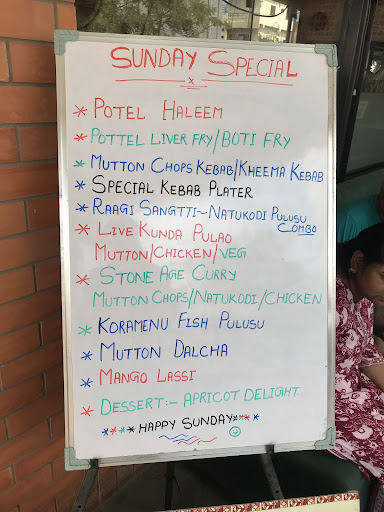 SUNDAY SPECIAL
x
* POTEL HALEEM
* POTTEL LIVER FRY/BOTI FRY
* MUTTON CHOPS KEBAB/KHEEMA KEBAB
* SPECIAL KEBAB PLATER
* RAAGI SANGTTI~NATUKODI PULUSU
COMBO
* LIVE KUNDA PULAO
MUTTON/CHICKEN/VEG
* STONE AGE CURRY
MUTTON CHOPS/NATUKODI/CHICKEN
* KORAMENU FISH PULUSU
* MUTTON DALCHA
* MANGO LASSI
* DESSERT:- APRICOT DELIGHT
**** HAPPY SUNDAY**** ☺